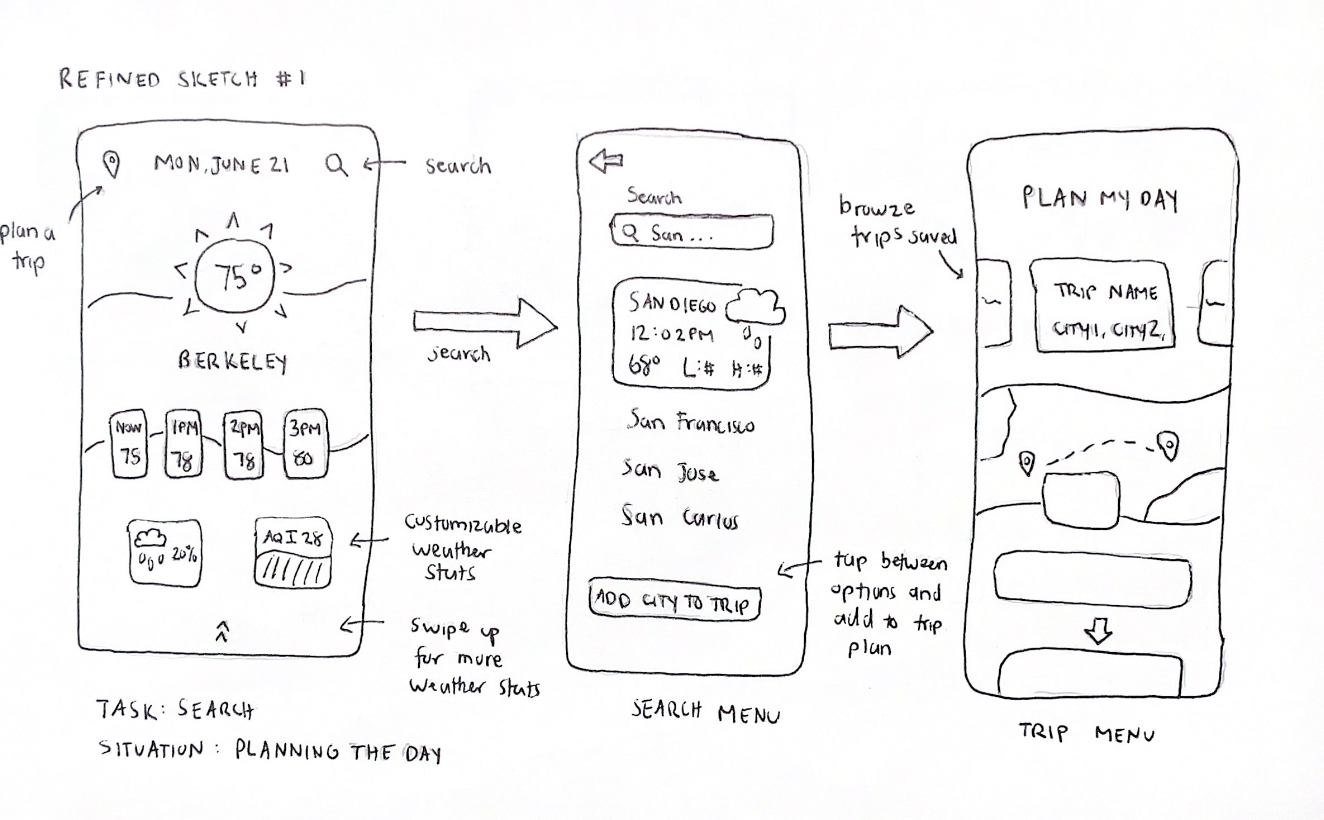 REFINED SKETCH #1
MON, JUNE 21
search
plan a
trip
75°
BERKELEY
NOW
75
1PM
78
2PM
78
3PM
80
20%
AQI 28
Customizable
weather
stats
swipe up
for more
weather stats
TASK: SEARCH
SITUATION: PLANNING THE DAY
search
Search
San ...
SAN DIEGO
12:02PM
68° L:# H:#
San Francisco
San Jose
San Carlos
ADD CITY TO TRIP
tap between
options and
add to trip
plan
SEARCH MENU
browze
trips saved
PLAN MY DAY
TRIP NAME
CITY1, CITY2,
TRIP MENU